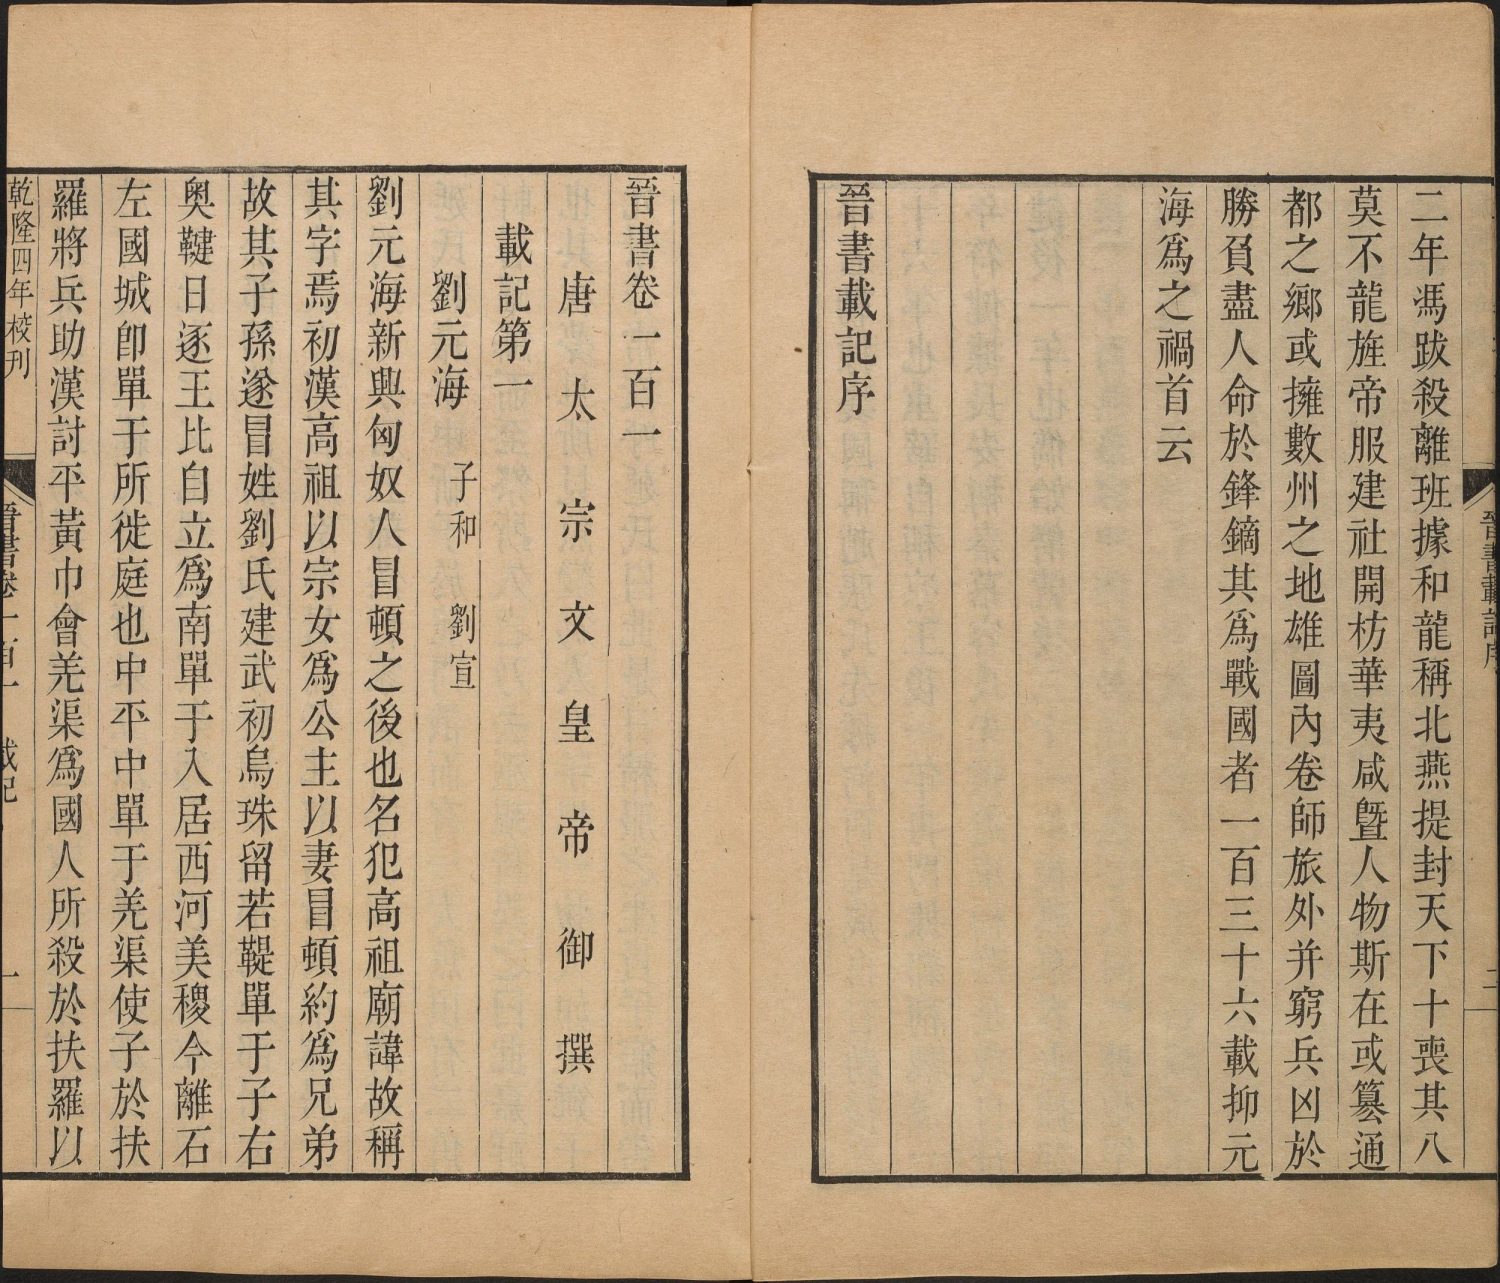 晉書載記序
二
二年馮跋殺離班據和龍稱北燕提封天下十喪其八
莫不龍旌帝服建社開祊華夷咸曁人物斯在或篡通
都之鄉或擁數州之地雄圖內卷師旅外并窮兵凶於
勝負盡人命於鋒鏑其爲戰國者一百三十六載抑元
海爲之禍首云
晉書載記序
晉書卷一百一
唐太宗文皇帝御撰
載記第一
劉元海 子和 劉宣
劉元海新興匈奴人冒頓之後也名犯高祖廟諱故稱
其字焉初漢高祖以宗女爲公主以妻冒頓約爲兄弟
故其子孫遂冒姓劉氏建武初烏珠留若鞮單于子右
奧鞬日逐王比自立爲南單于入居西河美稷今離石
左國城卽單于所徙庭也中平中單于羌渠使子於扶
羅將兵助漢討平黃巾會羌渠爲國人所殺於扶羅以
乾隆四年校刊
晉書卷一百一 載記
一